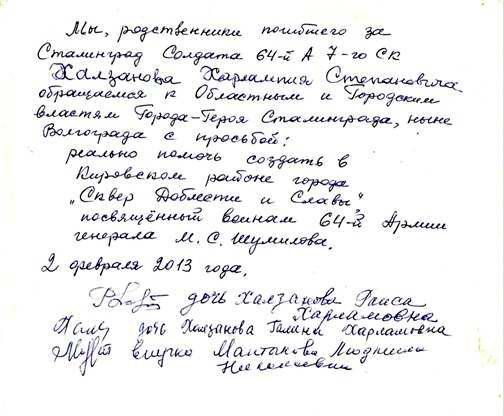 Мы, родственники погибшего за
Сталинград Солдата 64-й А 7-го СК
Халзанова Харлампия Степановича
обращаемся к Областным и Городским
властям Города-Героя Сталинграда, ныне
Волгограда с просьбой:
реально помочь создать в
Кировском районе города
„Сквер Доблести и Славы"
посвящённый воинам 64-й Армии
генерала М. С. Шумилова.
2 февраля 2013 года.
дочь Халзанова Раиса
Харламовна
дочь Халзанова Галина Харламовна
внучка Мантанова Людмила
Николаевна